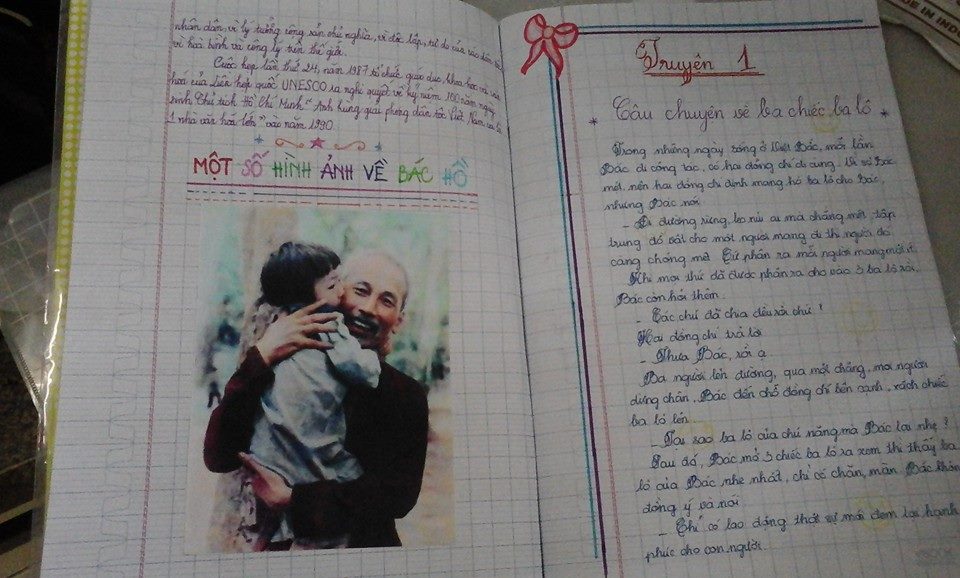 nhân dân, vì lý tưởng cộng sản chủ nghĩa, vì độc lập, tự do của các dân tộc,
vì hoà bình và công lý trên thế giới.
Cuộc họp lần thứ 24, năm 1987 tổ chức giáo dục khoa học và văn
hoá của Liên hợp quốc UNESCO ra nghị quyết về kỷ niệm 100 năm ngày
sinh Chủ tịch Hồ Chí Minh "Anh hùng giải phóng dân tộc Việt Nam và là
1 nhà văn hoá lớn" vào năm 1990.
MỘT SỐ HÌNH ẢNH VỀ BÁC HỒ
Truyện 1
Câu chuyện về ba chiếc ba lô
Trong những ngày sống ở Việt Bắc, mỗi lần
Bác đi công tác, có hai đồng chí đi cùng. Vì sợ Bác
mệt, nên hai đồng chí định mang hộ ba lô cho Bác,
nhưng Bác nói
- Đi đường rừng, leo núi ai mà chẳng mệt, tập
trung đồ vật cho một người mang đi thì người đó
càng chóng mệt. Cứ phân ra mỗi người mang một ít.
Khi mọi thứ đã được phân ra cho vào 3 ba lô rồi,
Bác còn hỏi thêm.
- Các chú đã chia đều rồi chứ?
Hai đồng chí trả lời
- Thưa Bác, rồi ạ.
Ba người lên đường, qua một chặng, mọi người
dừng chân, Bác đến chỗ đồng chí bên cạnh, xách chiếc
ba lô lên.
- Tại sao ba lô của chú nặng mà Bác lại nhẹ?
Sau đó, Bác mở 3 chiếc ba lô ra xem thì thấy ba
lô của Bác nhẹ nhất, chỉ có chăn, màn. Bác không
đồng ý và nói
- Chỉ có lao động thật sự mới đem lại hạnh
phúc cho con người.